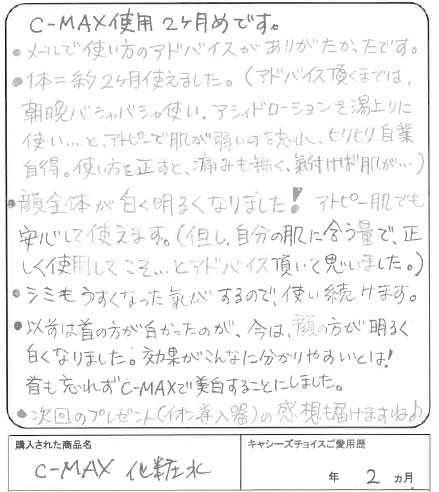 C-MAX使用2ヶ月めです。
・メールで使い方のアドバイスがありがたかったです。
・1本=約2ヶ月使えました。(アドバイス頂くまでは、
朝晩バシャバシャ使い、アシィドローションを湯上りに
使い…と、アトピーで肌が弱いのを忘れ、ヒリヒリ自業
自得。使い方を正すと、痛みも無く、氣付けば肌が…)
・顔全体が白く明るくなりました!アトピー肌でも
安心して使えます。(但し、自分の肌に合う量で、正
しく使用してこそ…とアドバイス頂いて思いました。)
・シミもうすくなった氣がするので、使い続けます。
・以前は首の方が白かったのが、今は、顔の方が明るく
白くなりました。効果がこんなに分かりやすいとは!
首も忘れずC-MAXで美白することにしました。
・次回のプレゼント(イオン導入器)の感想も届けますね♪
購入された商品名
キャシーズチョイスご愛用歴
C-MAX 化粧水
年 2 カ月